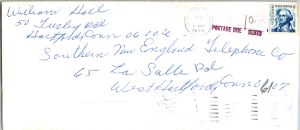 William Hall
50 Turley Rd
Hartford Conn 06106
POSTAGE DUE CENTS
Southern New England Telephone Co
65 La Salle Rd
West Hartford, Conn 06107